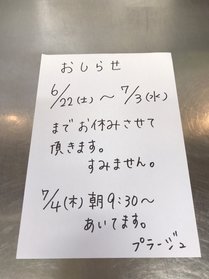 おしらせ
6/22(土)～7/3(水)
までお休みさせて
頂きます。
すみません。
7/4(木)朝9:30～
あいてます。
プラージュ